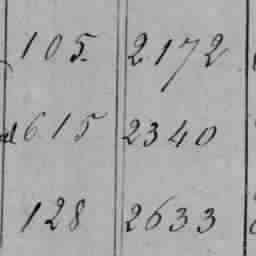 105. 2172
615 2340
128 2633